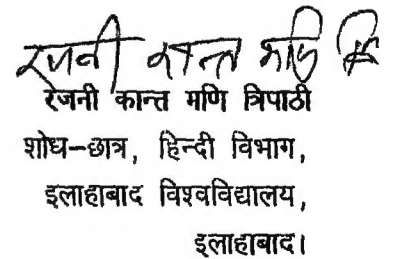 रजनी कान्त मणि त्रि
रजनी कान्त मणि त्रिपाठी
शोध-छात्र, हिन्दी विभाग,
इलाहाबाद विश्वविद्यालय,
इलाहाबाद।